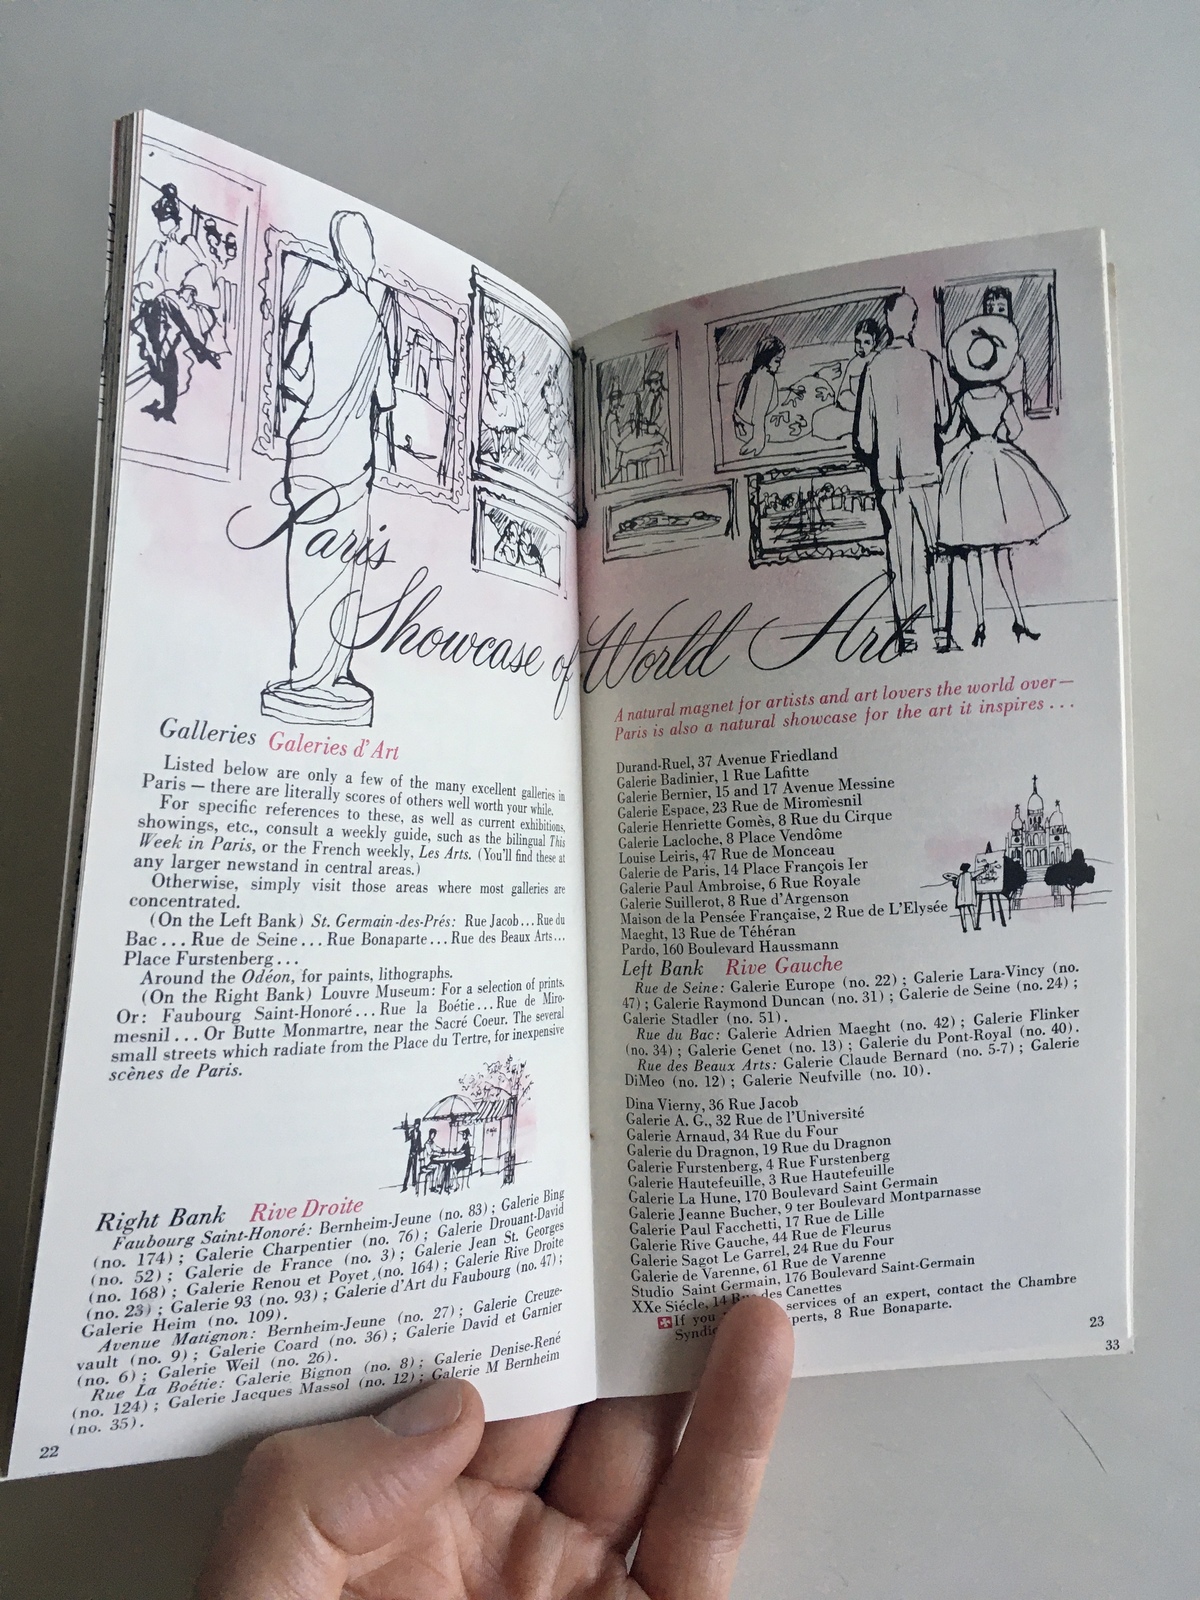 Paris
Showcase of World Art
Galleries Galeries d'Art
Listed below are only a few of the many excellent galleries in
Paris — there are literally scores of others well worth your while.
For specific references to these, as well as current exhibitions,
showings, etc., consult a weekly guide, such as the bilingual This
Week in Paris, or the French weekly, Les Arts. (You'll find these at
any larger newstand in central areas.)
Otherwise, simply visit those areas where most galleries are
concentrated.
(On the Left Bank) St. Germain-des-Prés: Rue Jacob... Rue du
Bac... Rue de Seine... Rue Bonaparte... Rue des Beaux Arts...
Place Furstenberg...
Around the Odéon, for paints, lithographs.
(On the Right Bank) Louvre Museum: For a selection of prints.
Or: Faubourg Saint-Honoré... Rue la Boétie... Rue de Miro-
mesnil... Or Butte Monmartre, near the Sacré Coeur. The several
small streets which radiate from the Place du Tertre, for inexpensive
scènes de Paris.
Right Bank Rive Droite
Faubourg Saint-Honoré: Bernheim-Jeune (no. 83); Galerie Bing
(no. 174); Galerie Charpentier (no. 76); Galerie Drouant-David
(no. 52); Galerie de France (no. 3); Galerie Jean St. Georges
(no. 168); Galerie Renou et Poyet (no. 164); Galerie Rive Droite
(no. 23); Galerie 93 (no. 93); Galerie d'Art du Faubourg (no. 47);
Galerie Heim (no. 109).
Avenue Matignon: Bernheim-Jeune (no. 27); Galerie Creuze-
vault (no. 9); Galerie Coard (no. 36); Galerie David et Garnier
(no. 6); Galerie Weil (no. 26).
Rue La Boétie: Galerie Bignon (no. 8); Galerie Denise-René
(no. 124); Galerie Jacques Massol (no. 12); Galerie M Bernheim
(no. 35).
22
A natural magnet for artists and art lovers the world over—
Paris is also a natural showcase for the art it inspires...
Durand-Ruel, 37 Avenue Friedland
Galerie Badinier, 1 Rue Lafitte
Galerie Bernier, 15 and 17 Avenue Messine
Galerie Espace, 23 Rue de Miromesnil
Galerie Henriette Gomès, 8 Rue du Cirque
Galerie Lacloche, 8 Place Vendôme
Louise Leiris, 47 Rue de Monceau
Galerie de Paris, 14 Place François Ier
Galerie Paul Ambroise, 6 Rue Royale
Galerie Suillerot, 8 Rue d'Argenson
Maison de la Pensée Française, 2 Rue de L'Elysée
Maeght, 13 Rue de Téhéran
Pardo, 160 Boulevard Haussmann
Left Bank Rive Gauche
Rue de Seine: Galerie Europe (no. 22); Galerie Lara-Vincy (no.
47); Galerie Raymond Duncan (no. 31); Galerie de Seine (no. 24);
Galerie Stadler (no. 51).
Rue du Bac: Galerie Adrien Maeght (no. 42); Galerie Flinker
(no. 34); Galerie Genet (no. 13); Galerie du Pont-Royal (no. 40).
Rue des Beaux Arts: Galerie Claude Bernard (no. 5-7); Galerie
DiMeo (no. 12); Galerie Neufville (no. 10).
Dina Vierny, 36 Rue Jacob
Galerie A. G., 32 Rue de l'Université
Galerie Arnaud, 34 Rue du Four
Galerie du Dragnon, 19 Rue du Dragnon
Galerie Furstenberg, 4 Rue Furstenberg
Galerie Hautefeuille, 3 Rue Hautefeuille
Galerie La Hune, 170 Boulevard Saint Germain
Galerie Jeanne Bucher, 9 ter Boulevard Montparnasse
Galerie Paul Facchetti, 17 Rue de Lille
Galerie Rive Gauche, 44 Rue de Fleurus
Galerie Sagot Le Garrel, 24 Rue du Four
Galerie de Varenne, 61 Rue de Varenne
Studio Saint Germain, 176 Boulevard Saint-Germain
XXe Siécle, 14 Rue des Canettes
If you services of an expert, contact the Chambre
perts, 8 Rue Bonaparte.
23
33